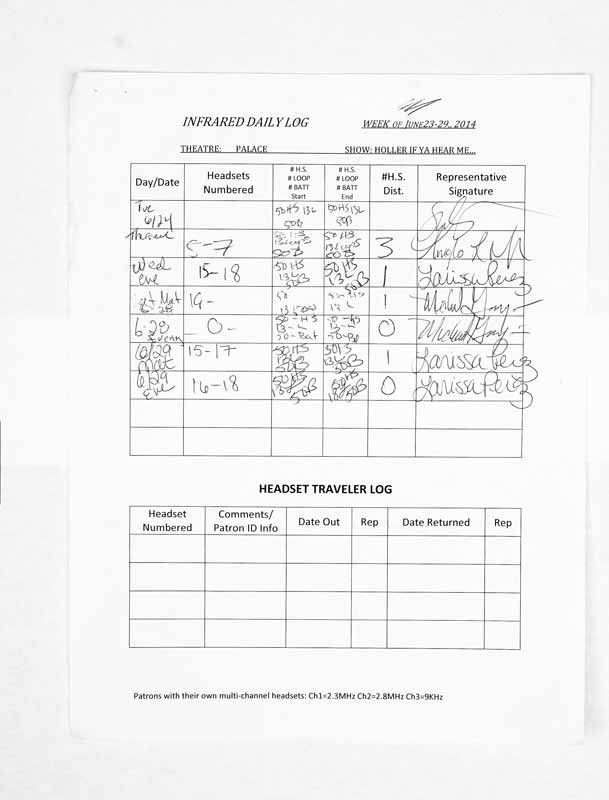 INFRARED DAILY LOG
WEEK OF JUNE23-29, 2014
THEATRE: PALACE
SHOW: HOLLER IF YA HEAR ME...
Day/Date
Headsets Numbered
# H.S.
# LOOP
# BATT
Start
# H.S.
# LOOP
# BATT
End
#H.S.
Dist.
Representative
Signature
Tue
6/24
50HS 13L
50B
50HS 13L
50B
5-7
50B
50B
3
Wed
eve
15-18
50HS
13L
50B
50HS
13L
50B
1
Larissa Perez
Mat
19-
50
13
13 L
1
6-28
-0-
50-HS
13-L
50-Bat
50-HS
13-L
50-Ba
0
6/29
Mat
15-17
50HS
13L
50B
50HS
13L
50B
1
Larissa Perez
6/29
Eve
16-18
50HS
13L
50B
50HS
50B
0
Larissa Perez
HEADSET TRAVELER LOG
Headset
Numbered
Comments/
Patron ID Info
Date Out
Rep
Date Returned
Rep
Patrons with their own multi-channel headsets: Ch1=2.3MHz Ch2=2.8MHz Ch3=9KHz